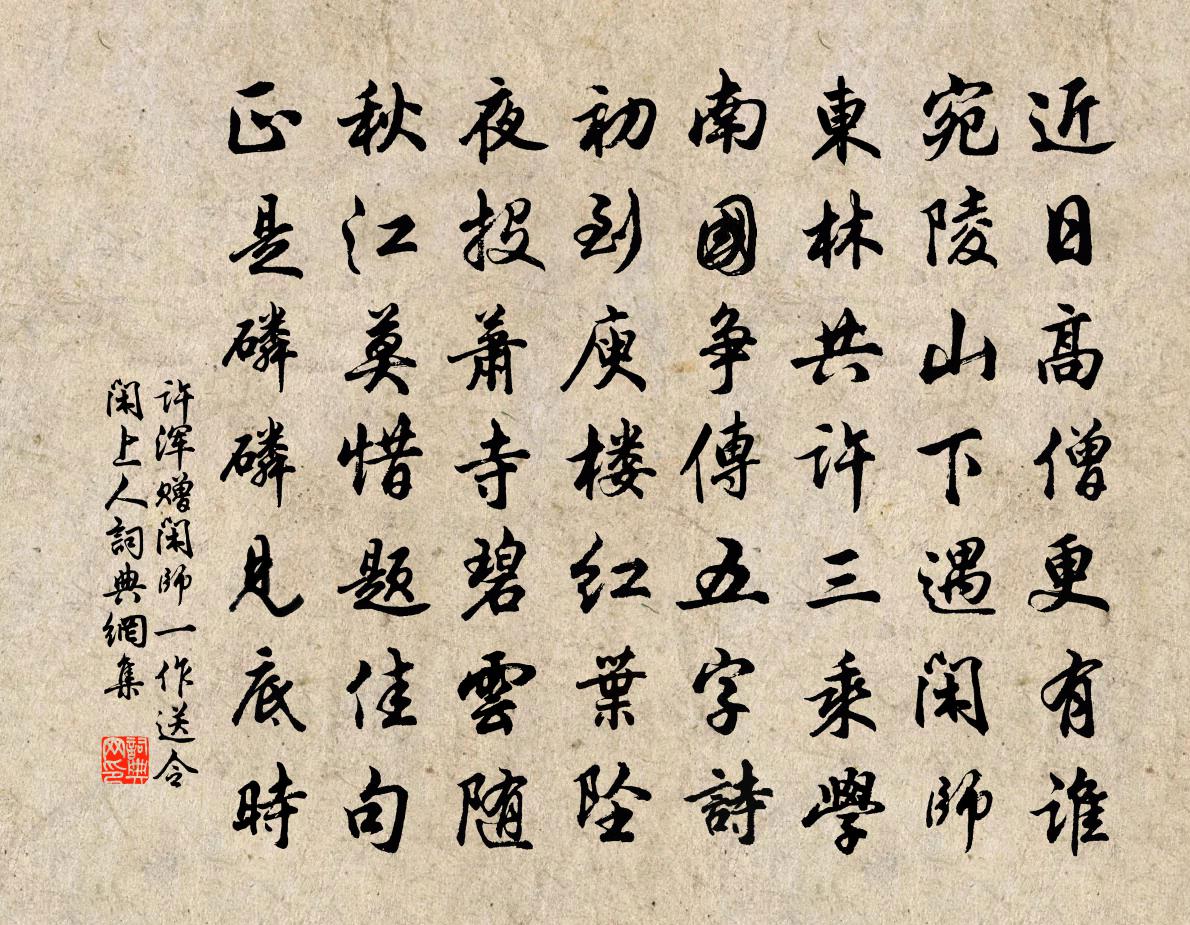 近日高僧更有谁
宛陵山下遇闲師
東林共许三乘學
南國争傳五字詩
初到庾楼红葉坠
夜投萧寺碧雲随
秋江莫惜题佳句
正是磷磷見底時
许浑赠闲師一作送令
闲上人詞典網集
詞典
网印